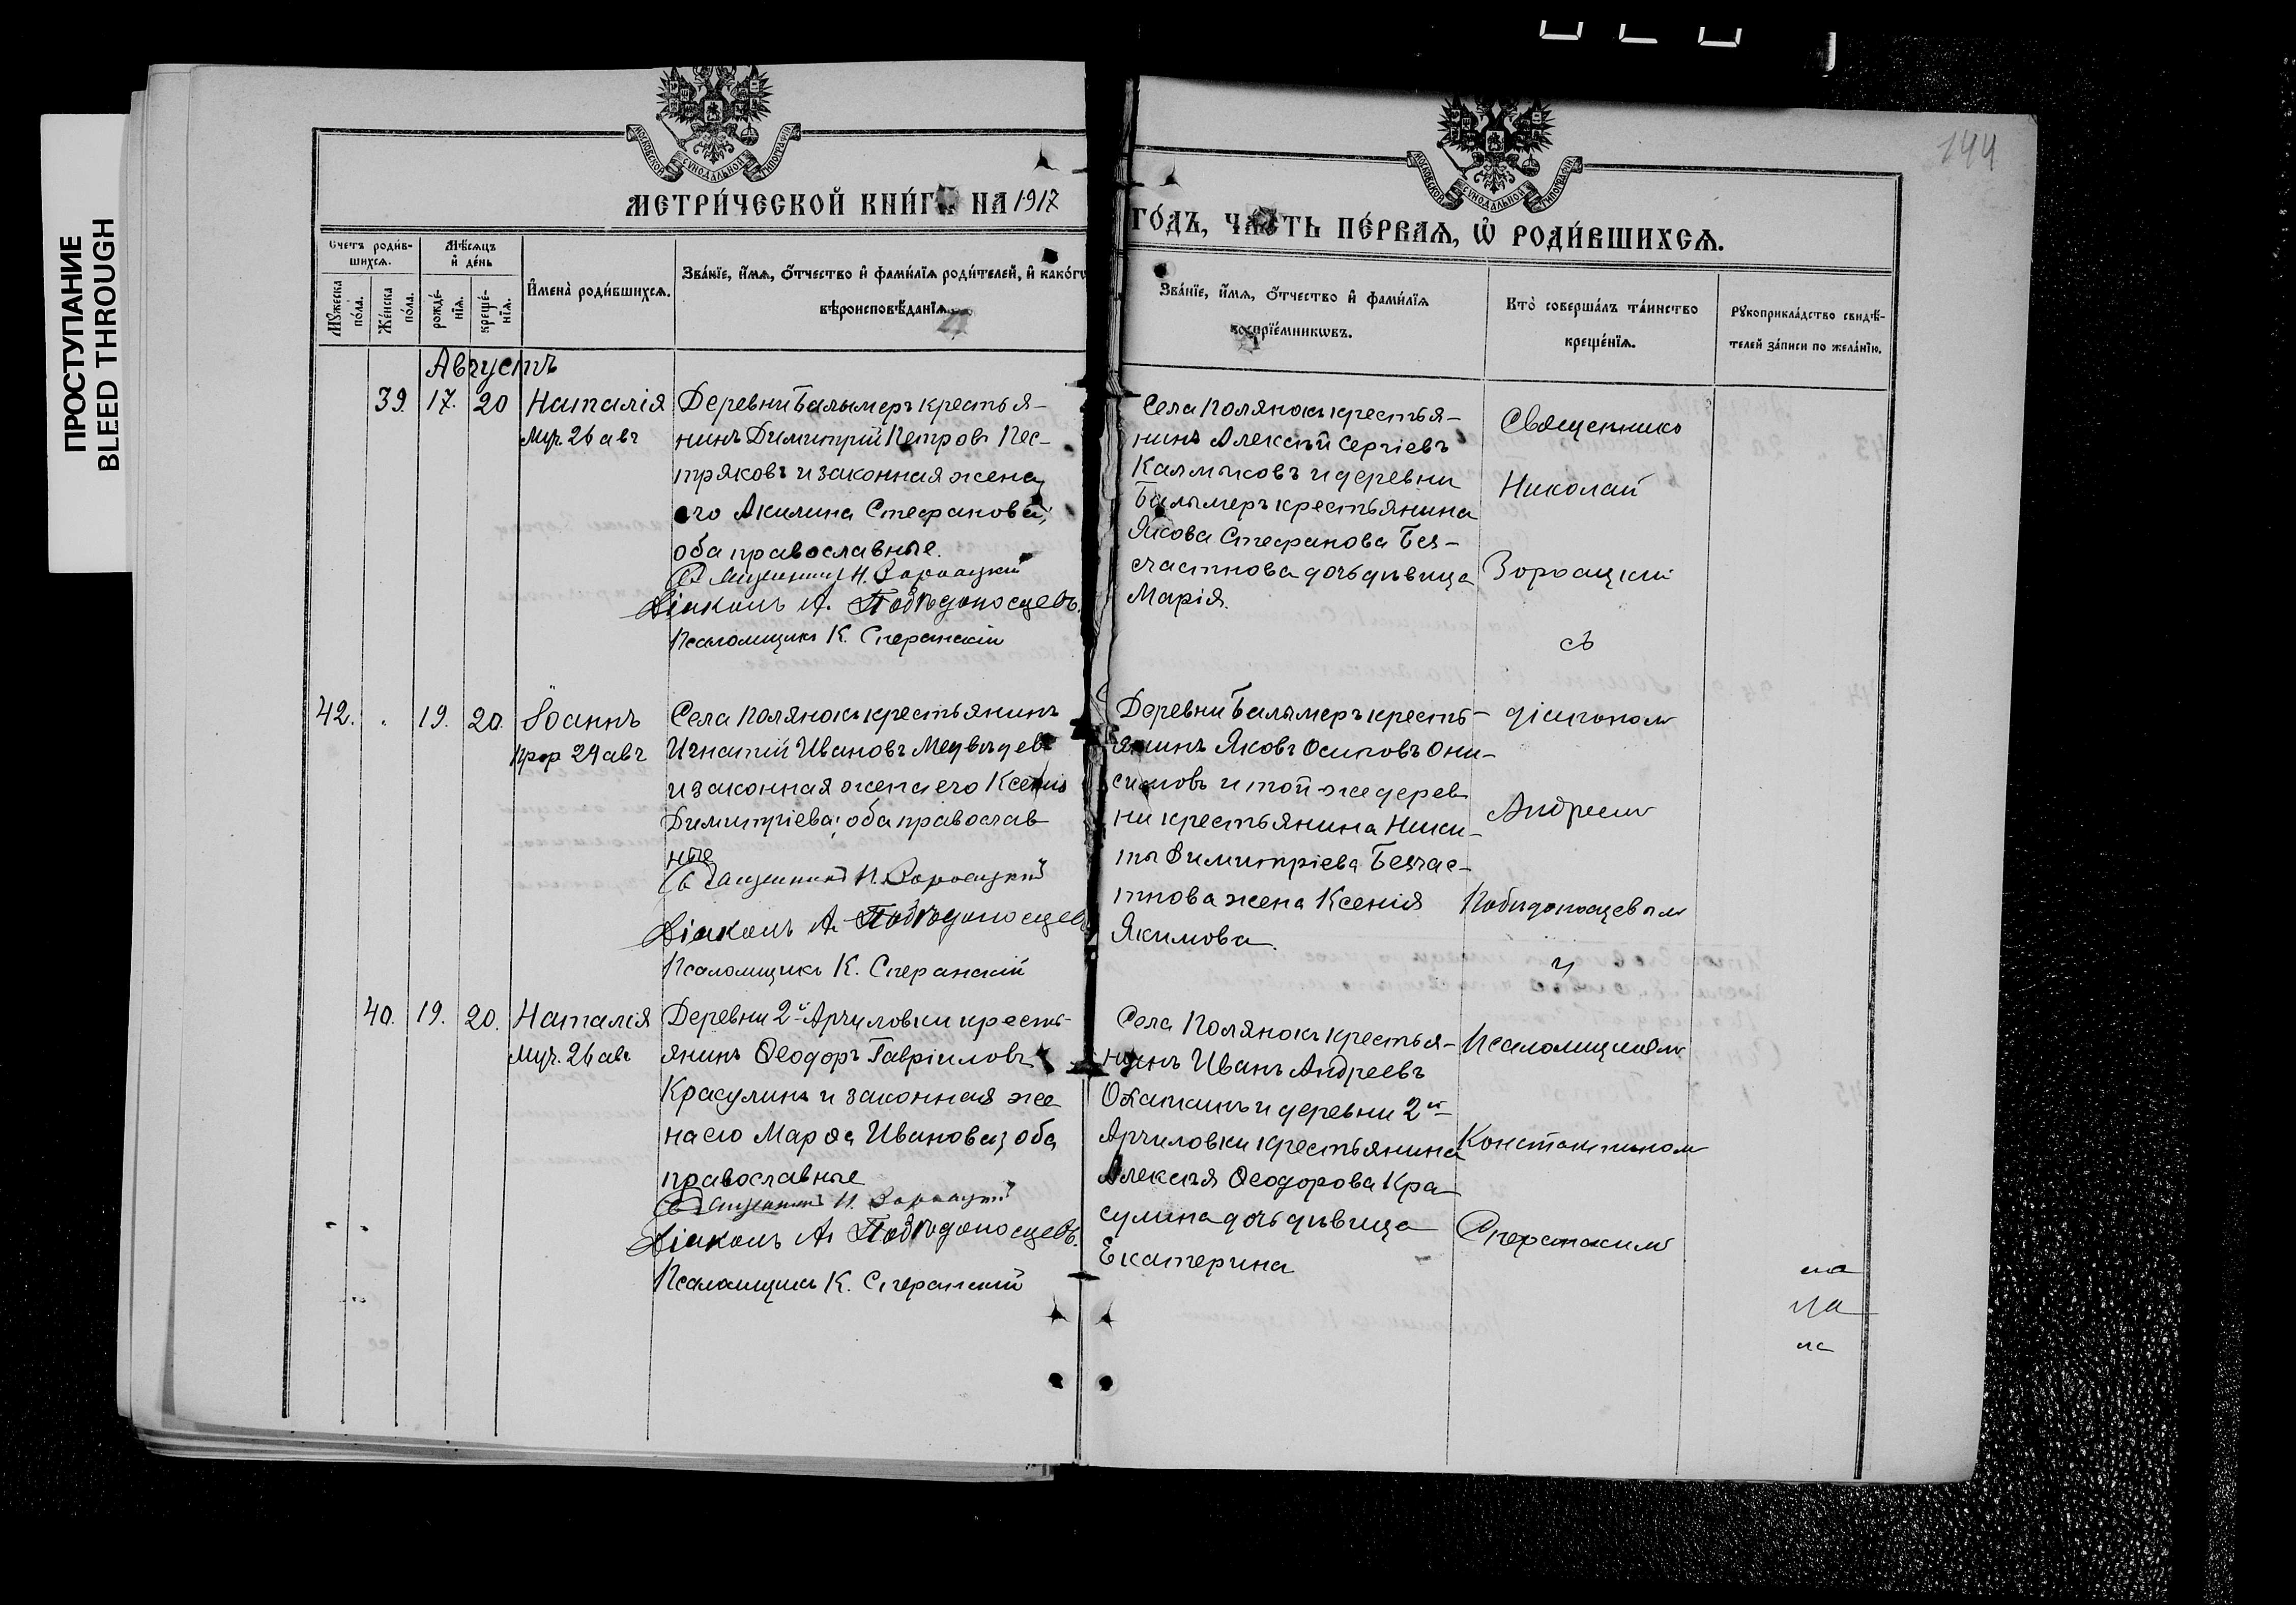 ПРОСТУПАНИЕ
BLEED THROUGH
144
МОСКОВСКОЙ СѴНОДАЛЬНОЙ ТИПОГРАФІИ
МОСКОВСКОЙ СѴНОДАЛЬНОЙ ТИПОГРАФІИ
МЕТРИ́ЧЕСКОЙ КНИ́Г НА 1917
ГО́ДЪ, ЧАСТЬ ПЕ́РВАЯ, Ѡ҆ РОДИ́ВШИХСЯ.
Счетъ роди́в-
шихся.
Мѣ́сяцъ
и҆ де́нь
Мꙋжеска
по́ла.
Же́нска
по́ла.
рожде́-
нїя.
креще́-
нїя.
И҆мена̀ роди́вшихся.
Зва́нїе, и҆́мя, о҆́тчество и҆ фами́лїя роди́телей, и҆ како́гѡ
вѣроисповѣ́данїя.
Зва́нїе, и҆́мя, о҆́тчество и҆ фами́лїя
воспрїе́мникѡвъ.
Кто̀ соверша́лъ та́инство
креще́нїя.
Рꙋкоприкла́дство свидѣ́-
телей за́писи по жела́нїю.
Августъ
39. 17. 20 Наталія
Муч. 26 авг
Деревни Балымеръ крестья-
нинъ Димитрій Петровъ Пес-
тряковъ и законная жена
его Акилина Стефанова,
оба православные.
Священникъ Н. Зороацкій
Діаконъ А. Побѣдоносцевъ.
Псаломщикъ К. Сперанскій
Села Полянокъ крестья-
нинъ Алексѣй Сергіевъ
Калмыковъ и деревни
Балымеръ крестьянина
Якова Стефанова Без-
счастнова дочь дѣвица
Марія.
42. " 19. 20. Іоаннъ
Прор 29 авг
Села Полянокъ крестьянинъ
Игнатій Ивановъ Медвѣдевъ
и законная жена его Ксенія
Димитріева; оба православ
ные
Священникъ Н. Зороацкій
Діаконъ А. Побѣдоносцевъ
Псаломщикъ К. Сперанскій
Деревни Балымеръ кресть-
янинъ Яковъ Осиповъ Они-
симовъ и той же дерев
ни крестьянина Ники-
ты Димитріева Безчас-
тнова жена Ксенія
Якимова.
40. 19. 20. Наталія
Муч. 26 авг
Деревни 2й Арчиловки кресть-
янинъ Ѳеодоръ Гавріиловъ
Красулинъ и законная же
на его Марѳа Иванова; оба
православные
Священникъ Н. Зороацкій
Діаконъ А. Побѣдоносцевъ.
Псаломщикъ К. Сперанскій
Села Полянокъ крестья-
нинъ Иванъ Андреевъ
и деревни 2й
Арчиловки крестьянина
Алексѣя Ѳеодорова Кра
сулина дочь дѣвица
Екатерина
Священникъ
Николай
Зороацкій
съ
діакономъ
Андреемъ
Побѣдоносцевымъ
и
Псаломщикомъ
Константиномъ
Сперанскимъ